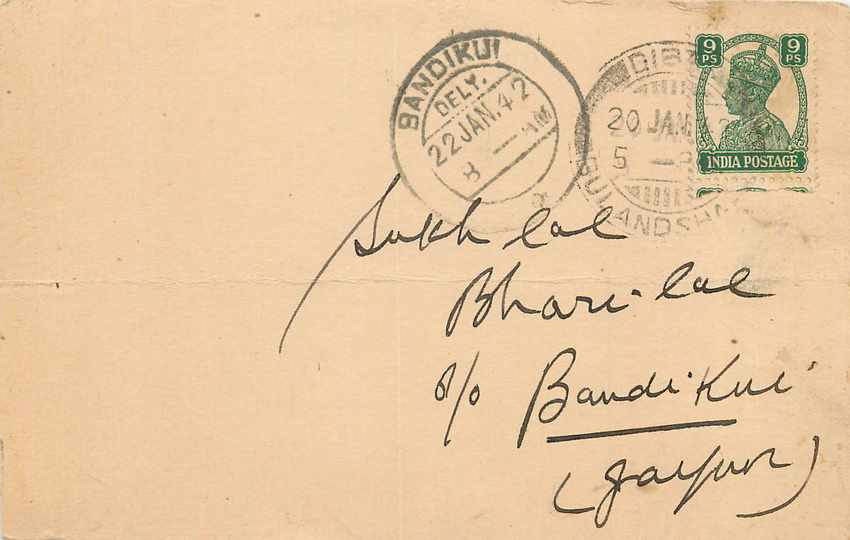 BANDIKUI
DELY.
22 JAN. 42
8 — AM
DIB
20 JAN
5 —
BULANDSH
9 9
PS PS
INDIA POSTAGE
Sukh lal
Bhari-lal
P/o Bandikui
(Jaipur)